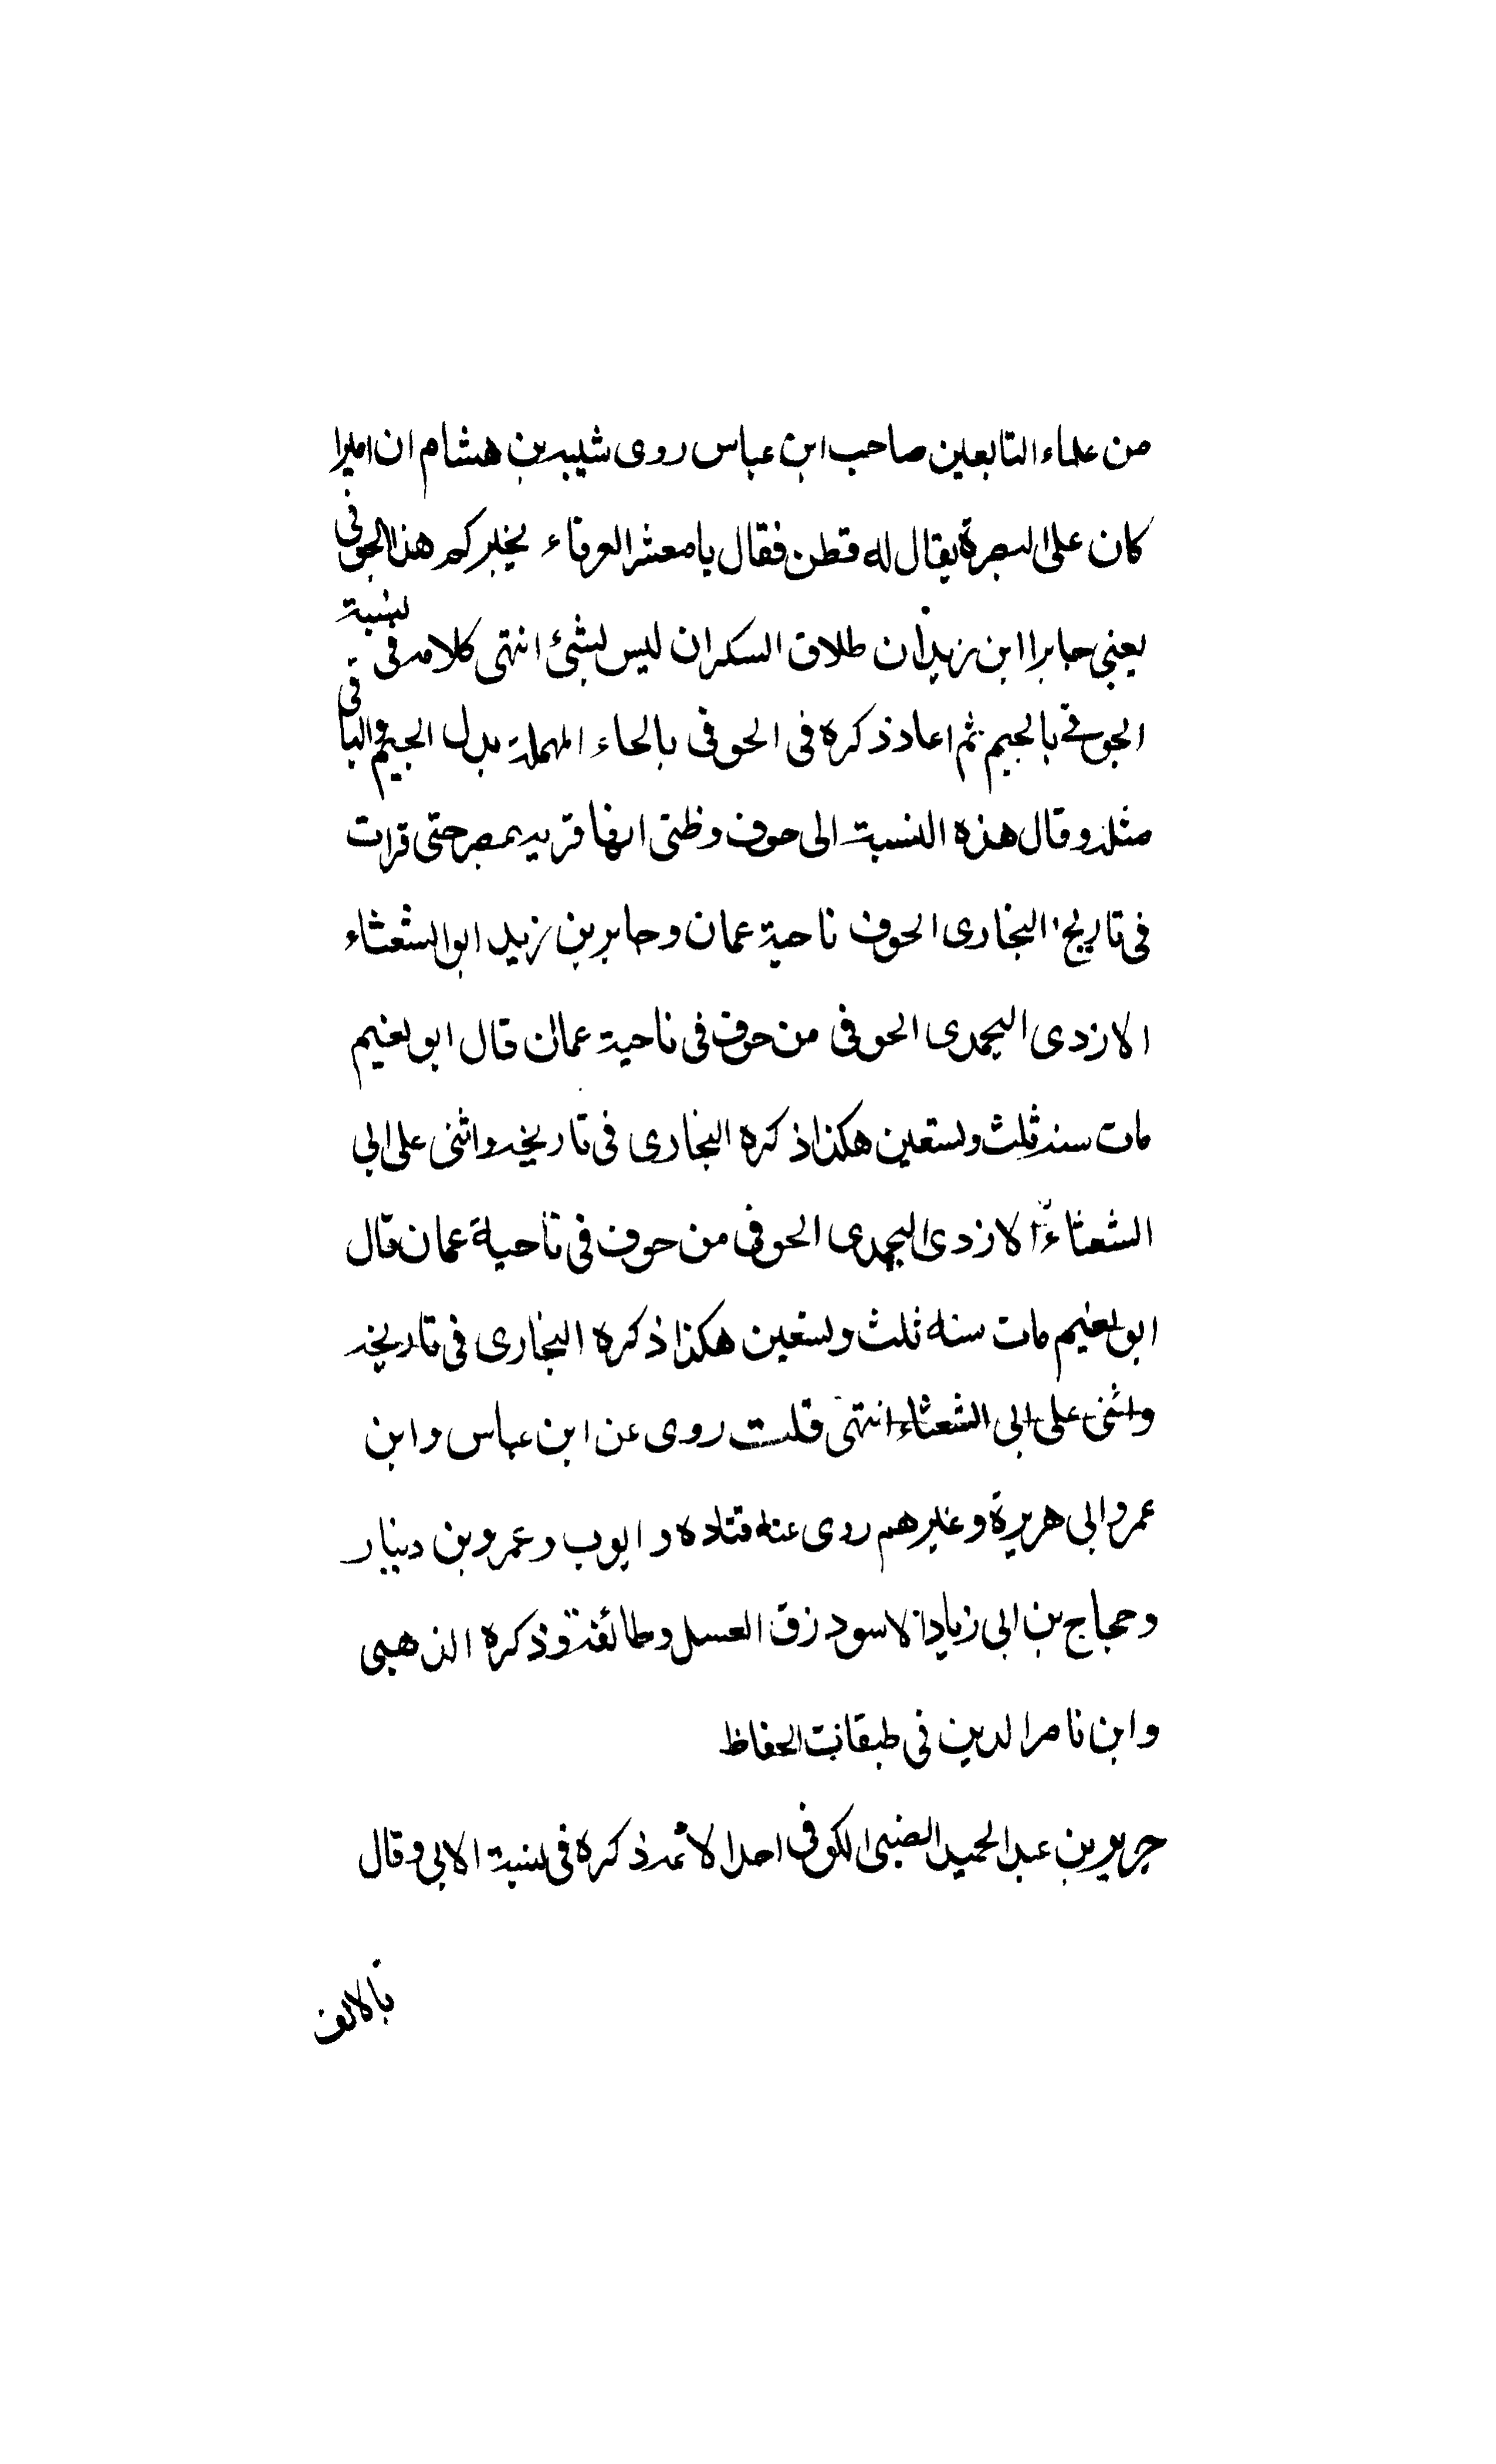 من علماء التابعين صاحب ابن عباس روى شيبه بن هشام ان اميرا
كان على البصرة يقال له قطن فقال يا معشر العرفاء يخبركم هذا الجوفى
يعنى جابرا ابن زيد ان طلاق السكران ليس بشئ انتهى كلامه فى نسبة
الجوفى بالجيم ثم اعاد ذكره فى الحوفى بالحاء المهملة بدل الجيم والباقى
مثله وقال هذه النسبة الى حوف وظنى انها قريه بمصر حتى قرات
فى تاريخ البخارى الحوف ناحية عمان وجابر بن زيد ابو الشعثاء
الازدى اليحمدى الحوفى من حوف فى ناحية عمان قال ابو نعيم
مات سنه ثلث وتسعين هكذا ذكره البخارى فى تاريخه واثنى على ابى
الشعثاء الازدى اليحمدى الحوفى من حوف فى ناحية عمان قال
ابو نعيم مات سنه ثلث وتسعين هكذا ذكره البخارى فى تاريخه
واثنى على ابى الشعثاء انتهى قلت روى عن ابن عباس وابن
عمر وابى هريرة وغيرهم روى عنه قتاده وايوب وعمرو بن دينار
وحجاج بن ابى زياد الاسود زق العسل وطائفة وذكره الذهبى
وابن ناصر الدين فى طبقات الحفاظ
جرير بن عبد الحميد الضبى الكوفى احد الائمه ذكره فى نسبة الابى وقال
بالالف